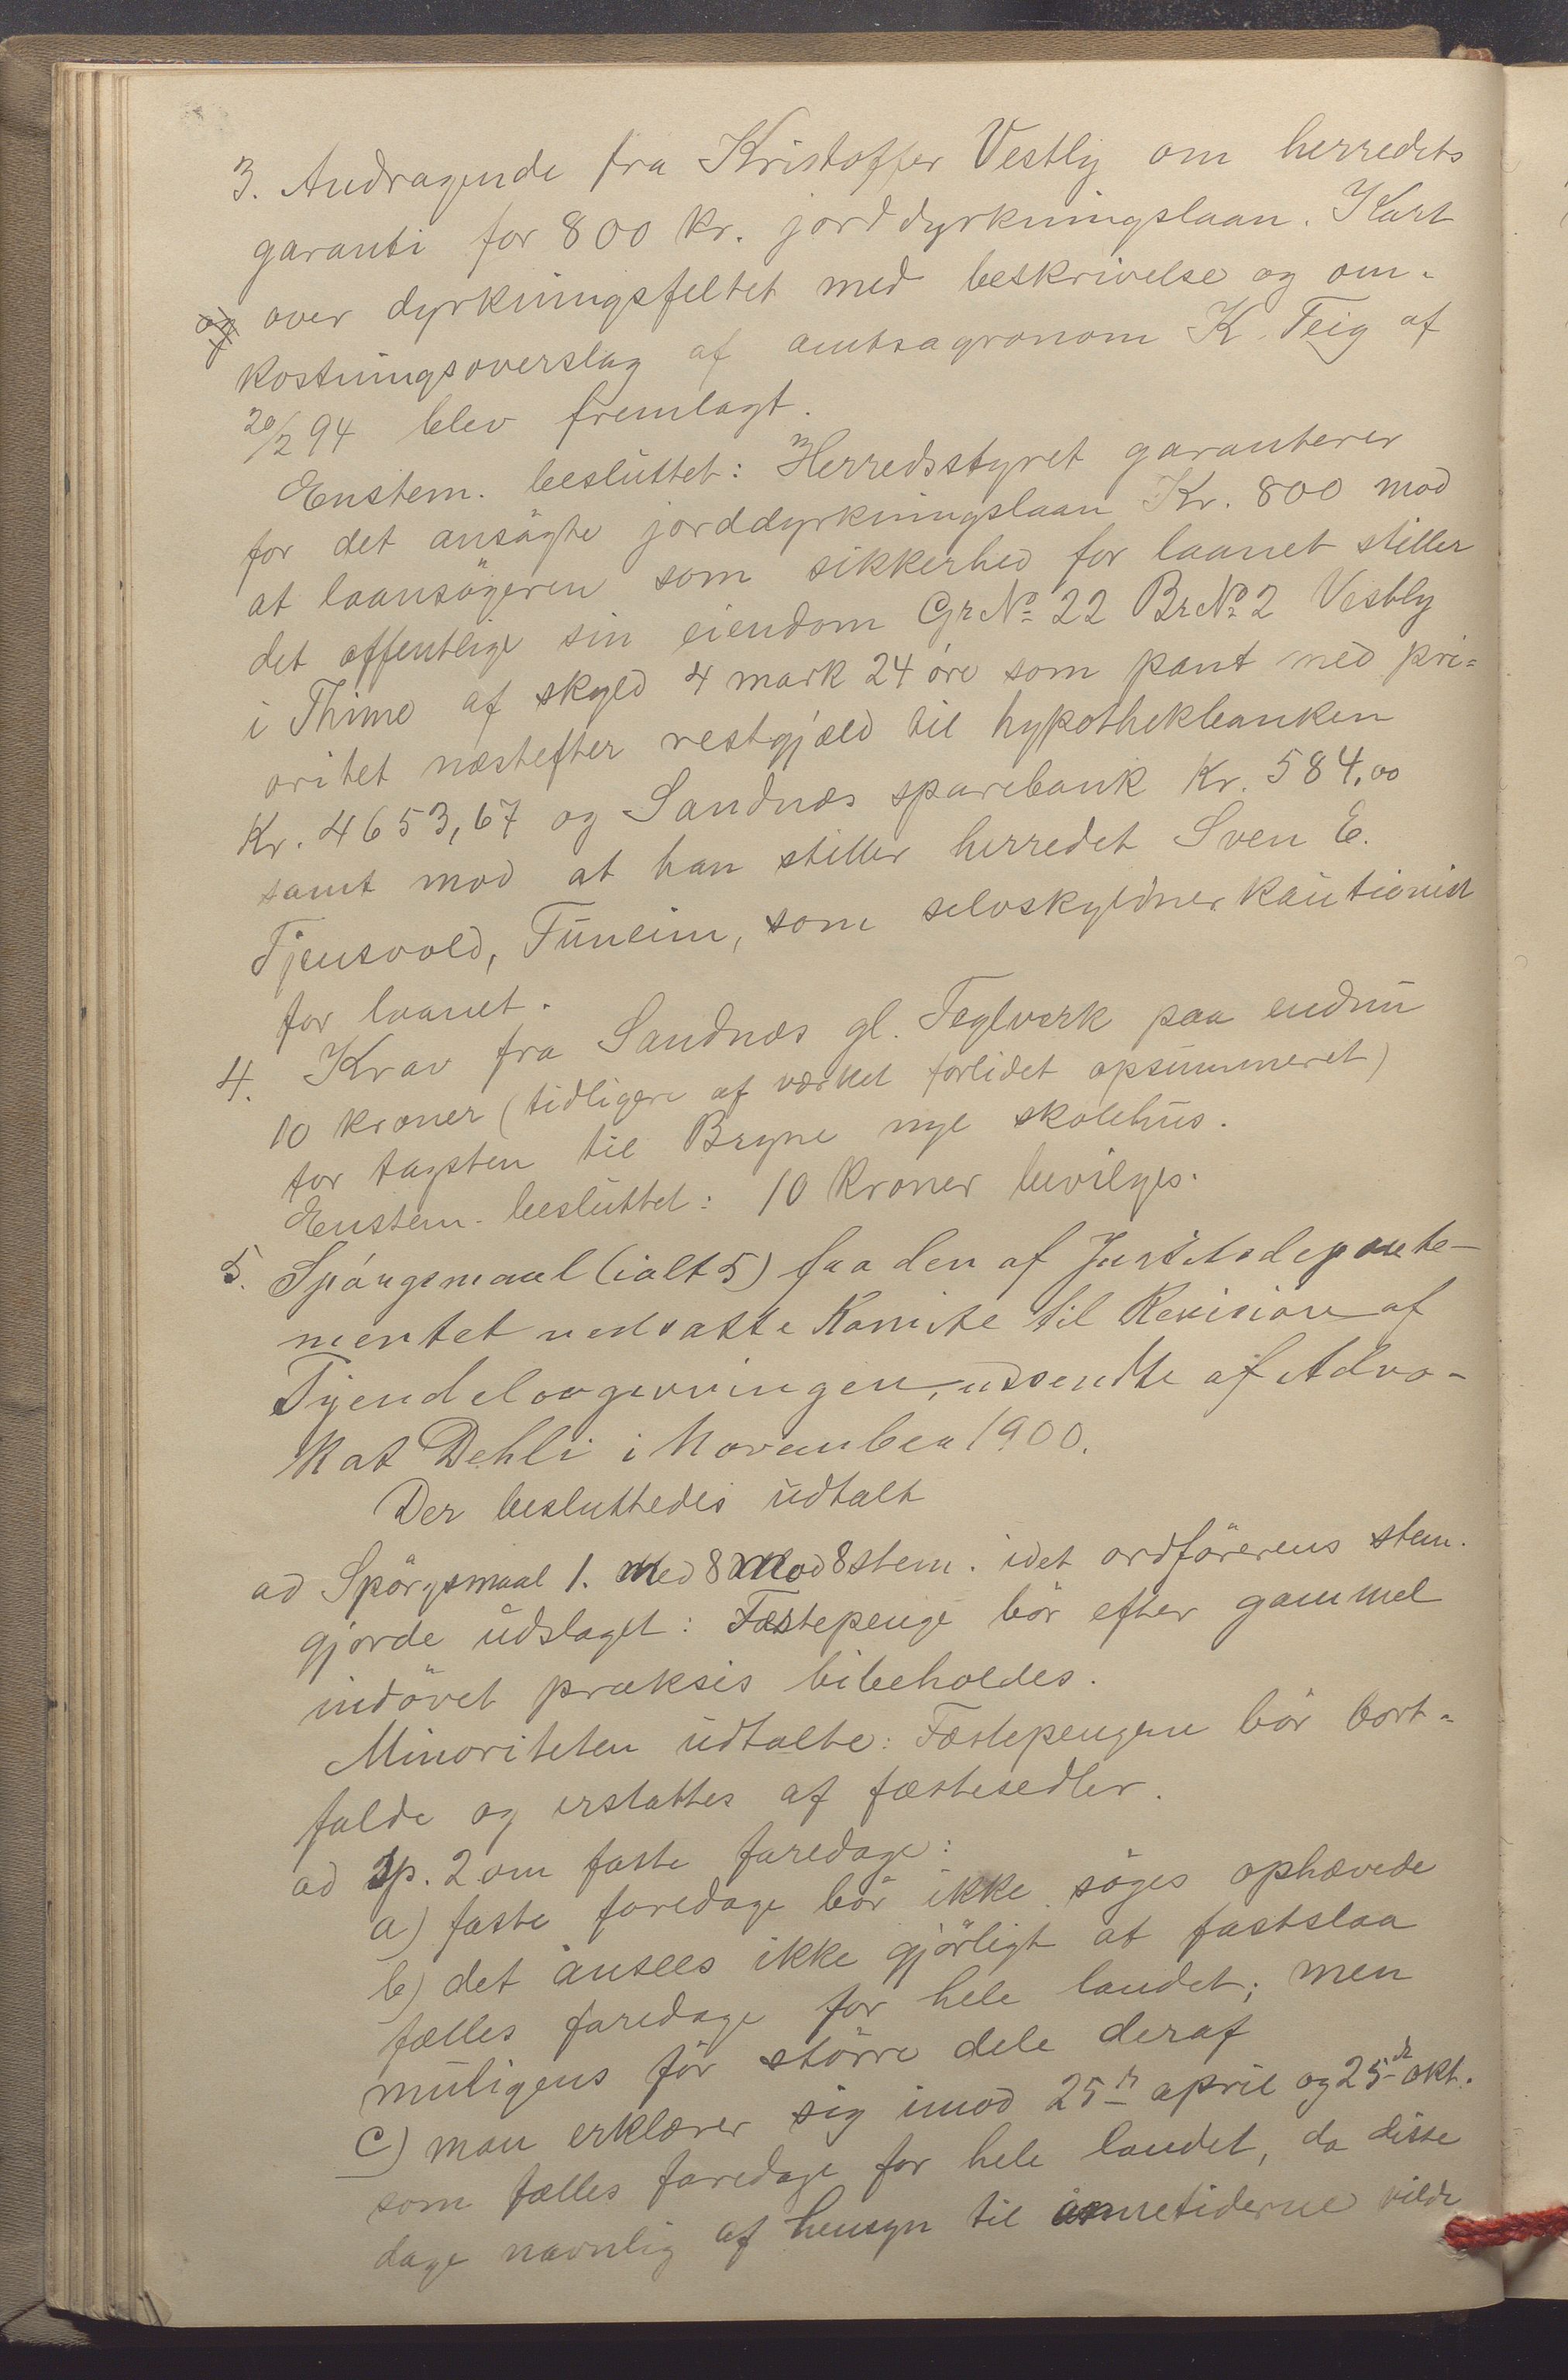 3. Andragende fra Kristoffer Vestly om herredets
garanti for 800 kr. jorddyrkningslaan. Kart
over dyrkningsfeltet med beskrivelse og om-
kostningsoverslag af amtsagronom K. Teig af
20/2 94 blev fremlagt.
Enstem. besluttet: Herredsstyret garanterer
for det ansøgte jorddyrkningslaan Kr. 800 mod
at laansøgeren som sikkerhed for laanet stiller
det offentlige sin eiendom Gr№ 22 Br№ 2 Vestly
i Thime af skyld 4 mark 24 øre som pant med pri=
oritet næstefter restgjæld til hypothekbanken
Kr. 4653,67 og Sandnæs sparebank Kr. 584,00
samt mod at han stiller herredet Sven E.
Tjensvold, Tuneim, som selvskyldnerkautionist
for laanet.
4. Krav fra Sandnæs gl. Teglverk paa endnu
10 kroner (tidligere af værket forlidet opsummeret)
for tagsten til Bryne nye skolehus.
Enstem. besluttet: 10 kroner bevilges.
5. Spörgsmaal (ialt 5) fra den af Justitsdeparte-
mentet nedsatte Komite til Revision af
Tyendelovgivningen, udsendte af Advo-
kat Dehli i November 1900.
Der besluttedes udtalt
ad Spörgsmaal 1. Med 8 mod 8 stem. idet ordförerens stem.
gjorde udslaget: Fæstepenge bör efter gammel
indövet praksis bibeholdes.
Minoriteten udtalte: Fæstepengene bör bort-
falde og erstattes af fæstesedler.
ad Sp. 2 om faste faredage:
a) faste faredage bör ikke söges ophævede
b) det ansees ikke gjörligt at fastslaa
fælles faredage for hele landet; men
muligens för större dele deraf
c) man erklærer sig imod 25de april og 25de okt.
som fælles faredage for hele landet, da disse
dage navnlig af hensyn til annetiderne vilde